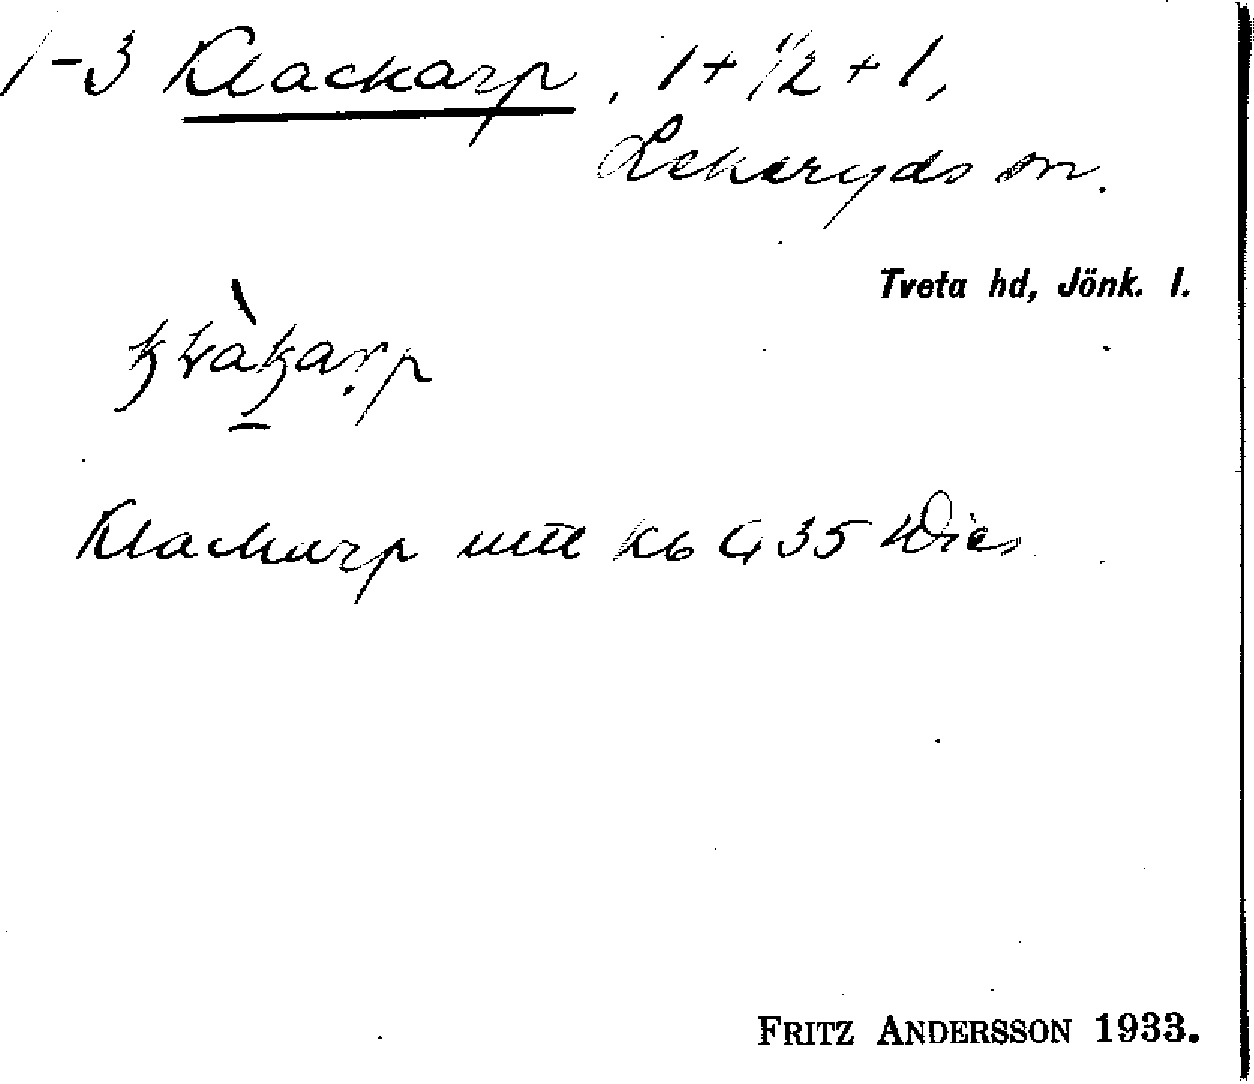 1-3 Klackarp, 1+1/2+1,
Lekeryds sn.
Tveta hd, Jönk. l.
Klackarp uttl Kb G 35 Dies
FRITZ ANDERSSON 1933.